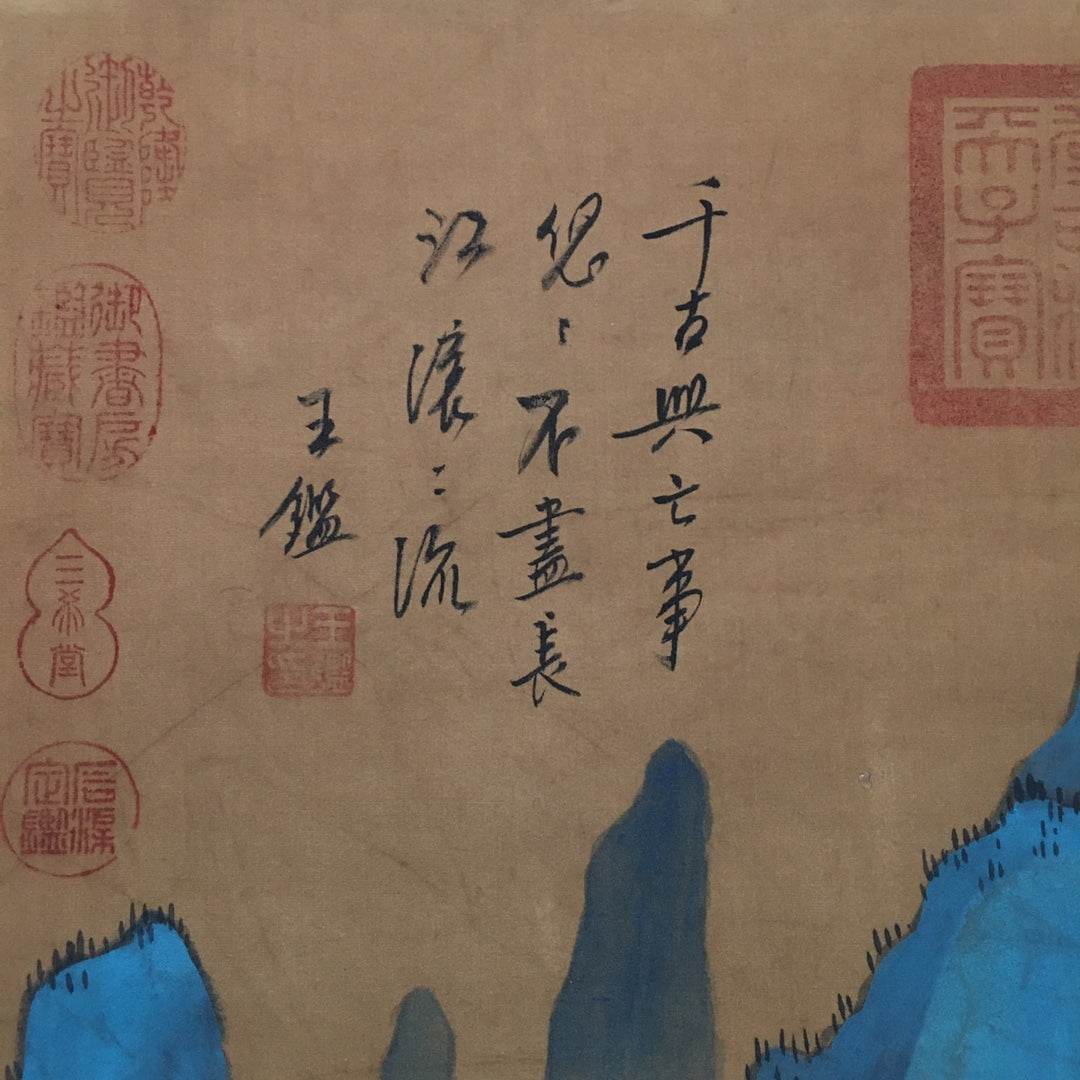 天子寶
千古興亡事
悠〻不盡長
江滾〻流
王鑑
王鑑之印
乾隆御覽之寶
御書房鑑藏寶
三希堂
石渠定鑑